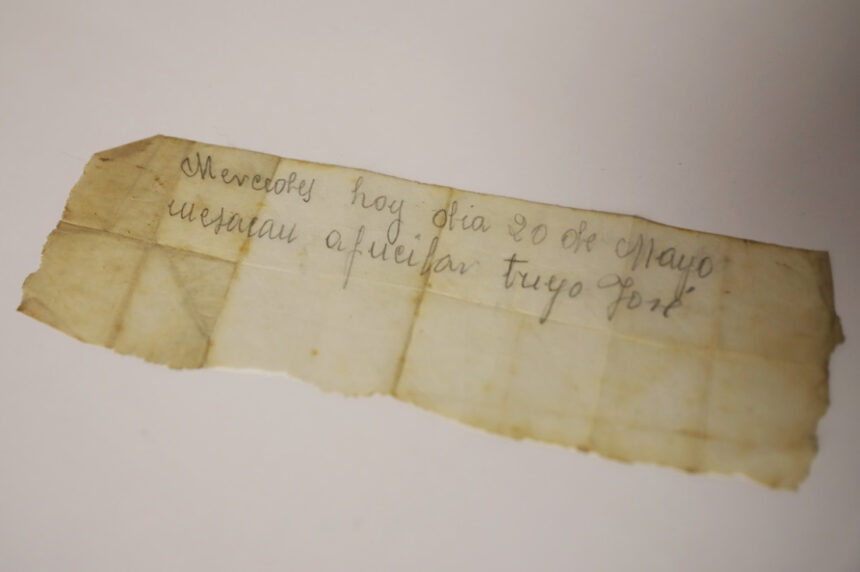 Mercedes hoy dia 20 de Mayo
mesacan afucilar tuyo José